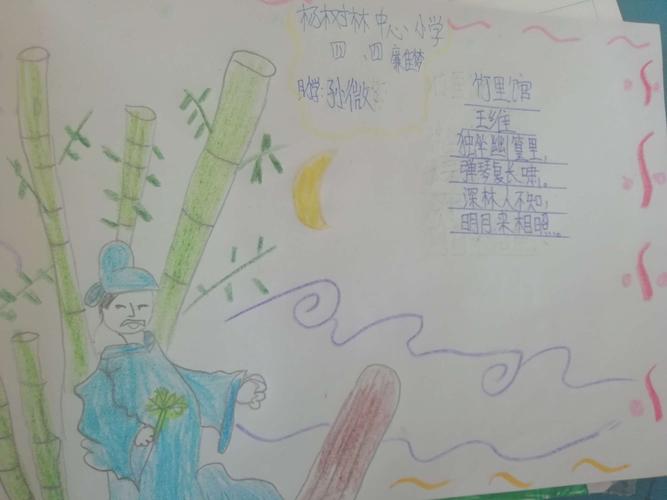 杨树林中心小学
四、四 廉佳梦
同学:孙微
竹里馆
王维
独坐幽篁里,
弹琴复长啸。
深林人不知,
明月来相照。